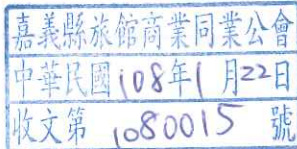 嘉義縣旅館商業同業公會
中華民國108年1月22日
收文第1080015號